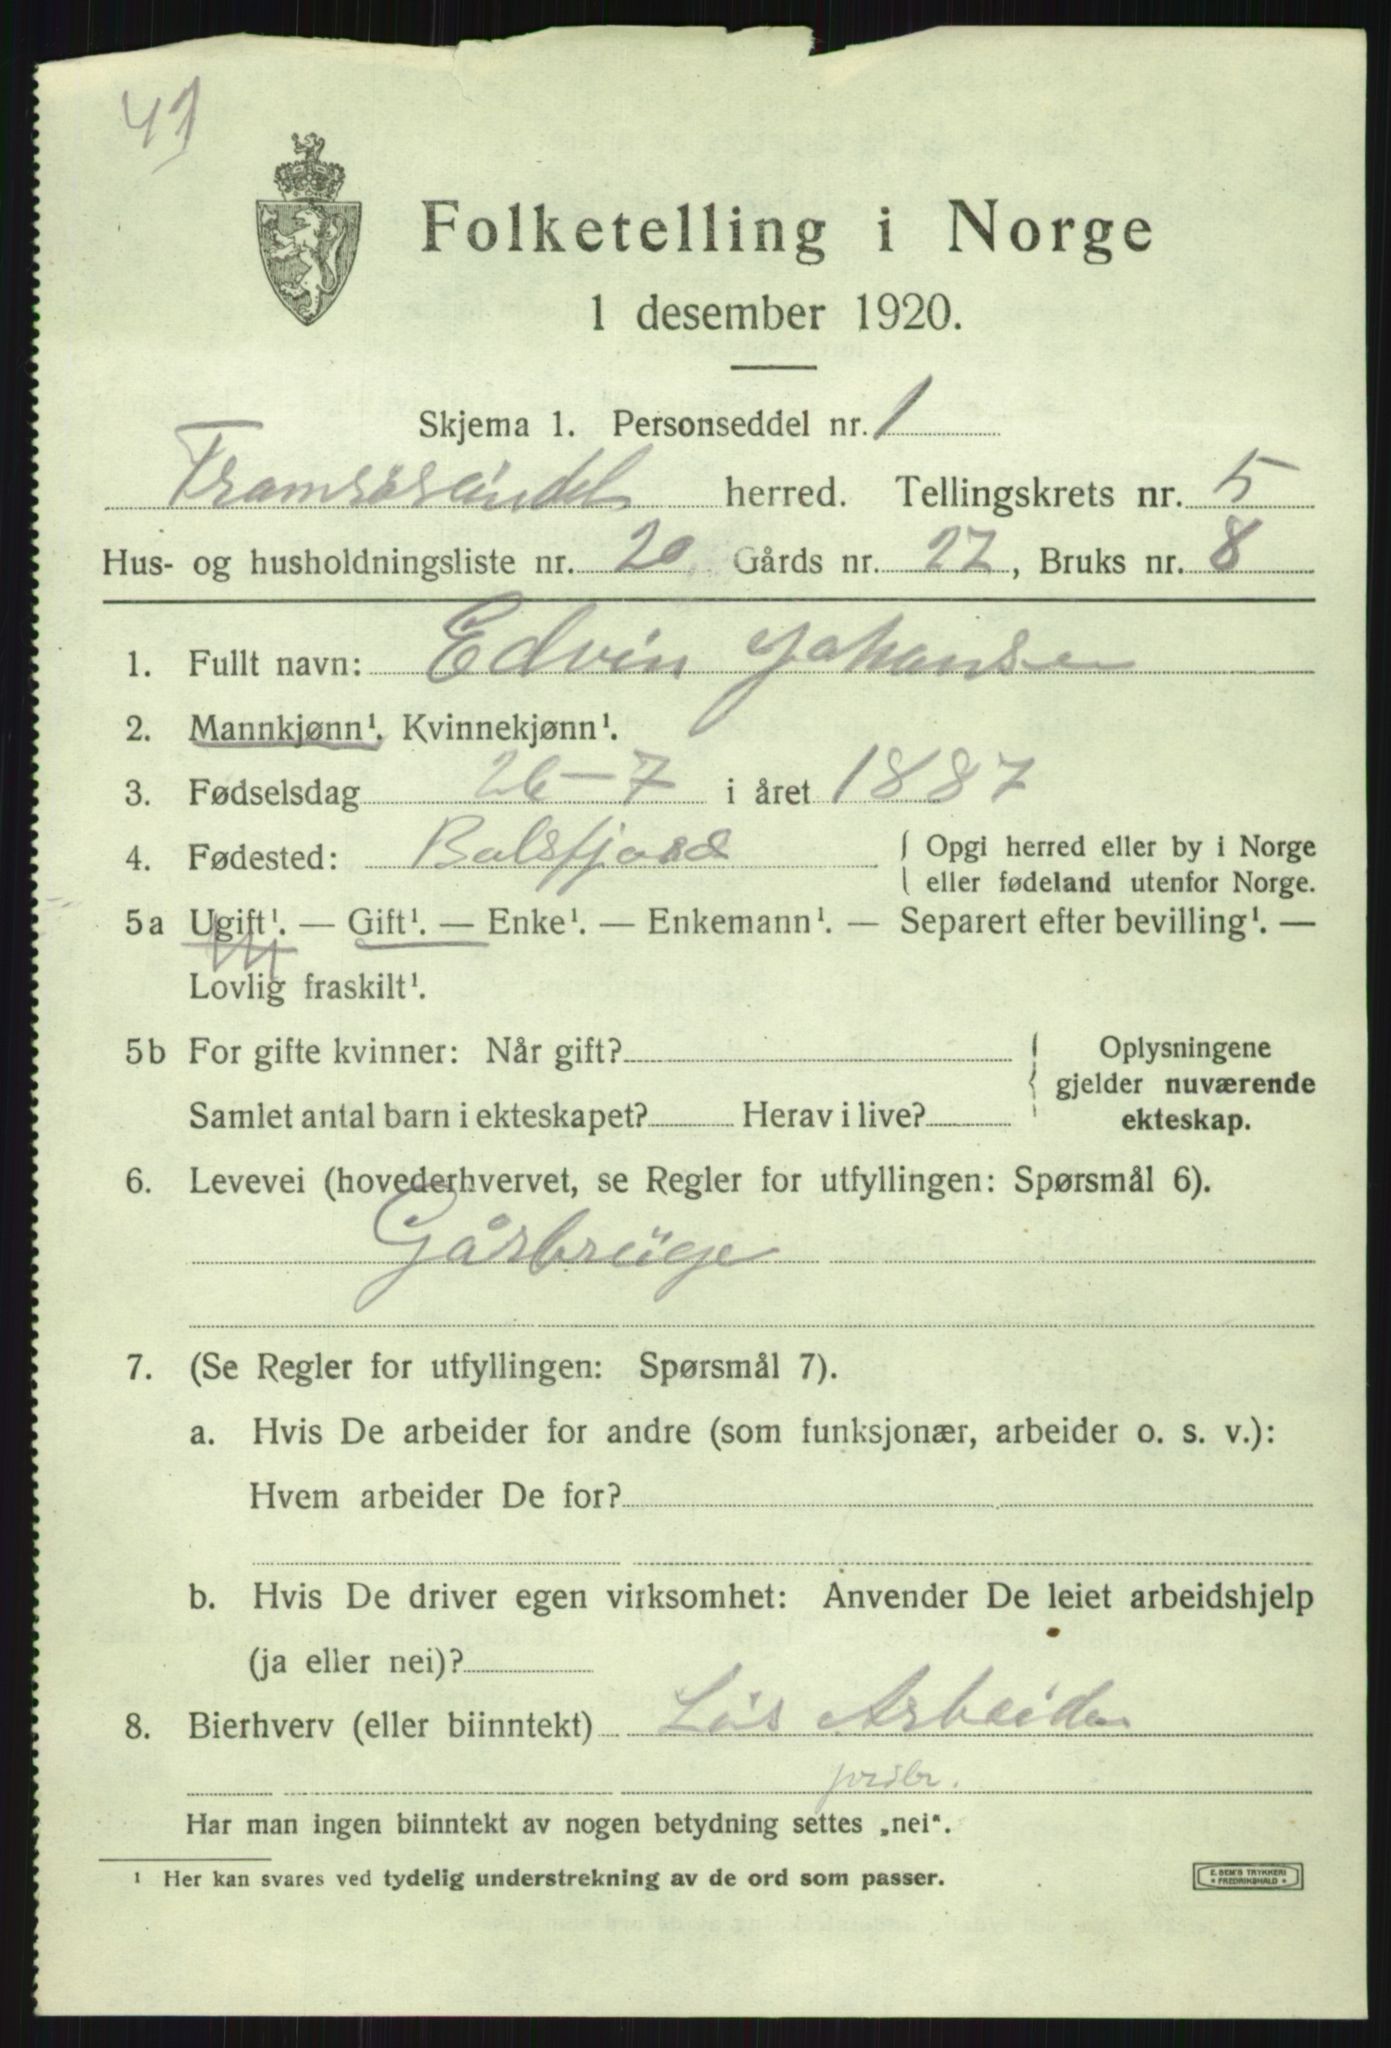 41
Folketelling i Norge
1 desember 1920.
Skjema 1. Personseddel nr. 1
Tromsøsundet herred. Tellingskrets nr. 5
Hus- og husholdningsliste nr. 20 Gårds nr. 22, Bruks nr. 8
1. Fullt navn: Edvin Johansen
2. Mannkjønn¹. Kvinnekjønn¹.
3. Fødselsdag 26-7 i året 1887
4. Fødested: Balsfjord { Opgi herred eller by i Norge
eller fødeland utenfor Norge.
5a Ugift¹. — Gift¹. — Enke¹. — Enkemann¹. — Separert efter bevilling¹. —
Lovlig fraskilt¹.
5b For gifte kvinner: Når gift? { Oplysningene
gjelder nuværende
Samlet antal barn i ekteskapet? Herav i live? ekteskap.
6. Levevei (hovederhvervet, se Regler for utfyllingen: Spørsmål 6).
Gårbruge
7. (Se Regler for utfyllingen: Spørsmål 7).
a. Hvis De arbeider for andre (som funksjonær, arbeider o. s. v.):
Hvem arbeider De for?
b. Hvis De driver egen virksomhet: Anvender De leiet arbeidshjelp
(ja eller nei)?
8. Bierhverv (eller biinntekt) Løis Arbeider
jordbr.
Har man ingen biinntekt av nogen betydning settes „nei“.
¹ Her kan svares ved tydelig understrekning av de ord som passer.
E. SEM'S TRYKKERI
FREDRIKSHALD